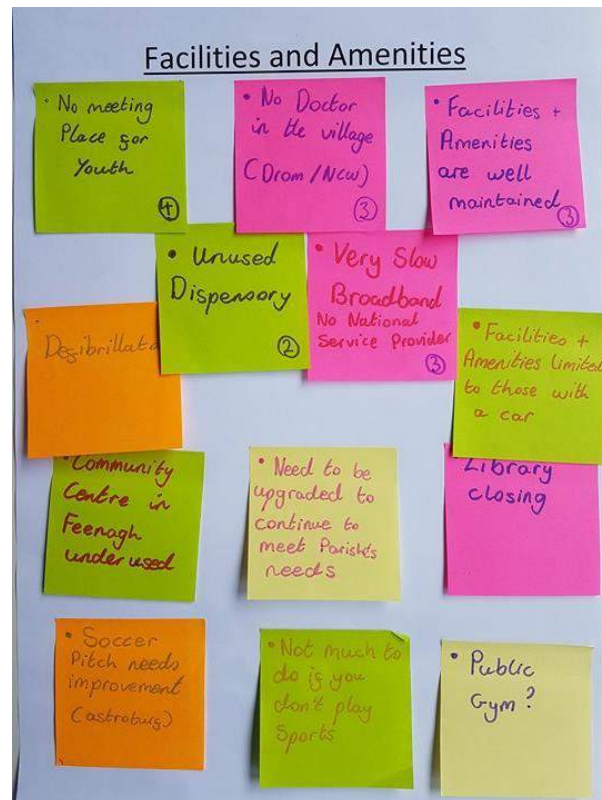 Facilities and Amenities
• No meeting
Place for
Youth
4
• No Doctor
in the village
(Drom/Ncw)
3
• Facilities +
Amenities
are well
maintained
3
• Unused
Dispensory
2
• Very Slow
Broadband
No National
Service Provider
3
Community
Centre in
Feenagh
underused
• Facilities +
Amenities Limited
to those with
a car
• Need to be
upgraded to
continue to
meet Parish's
needs
Library
closing
• Soccer
Pitch needs
improvement
(astroturf)
• Not much to
do if you
don't play
Sports
• Public
Gym?